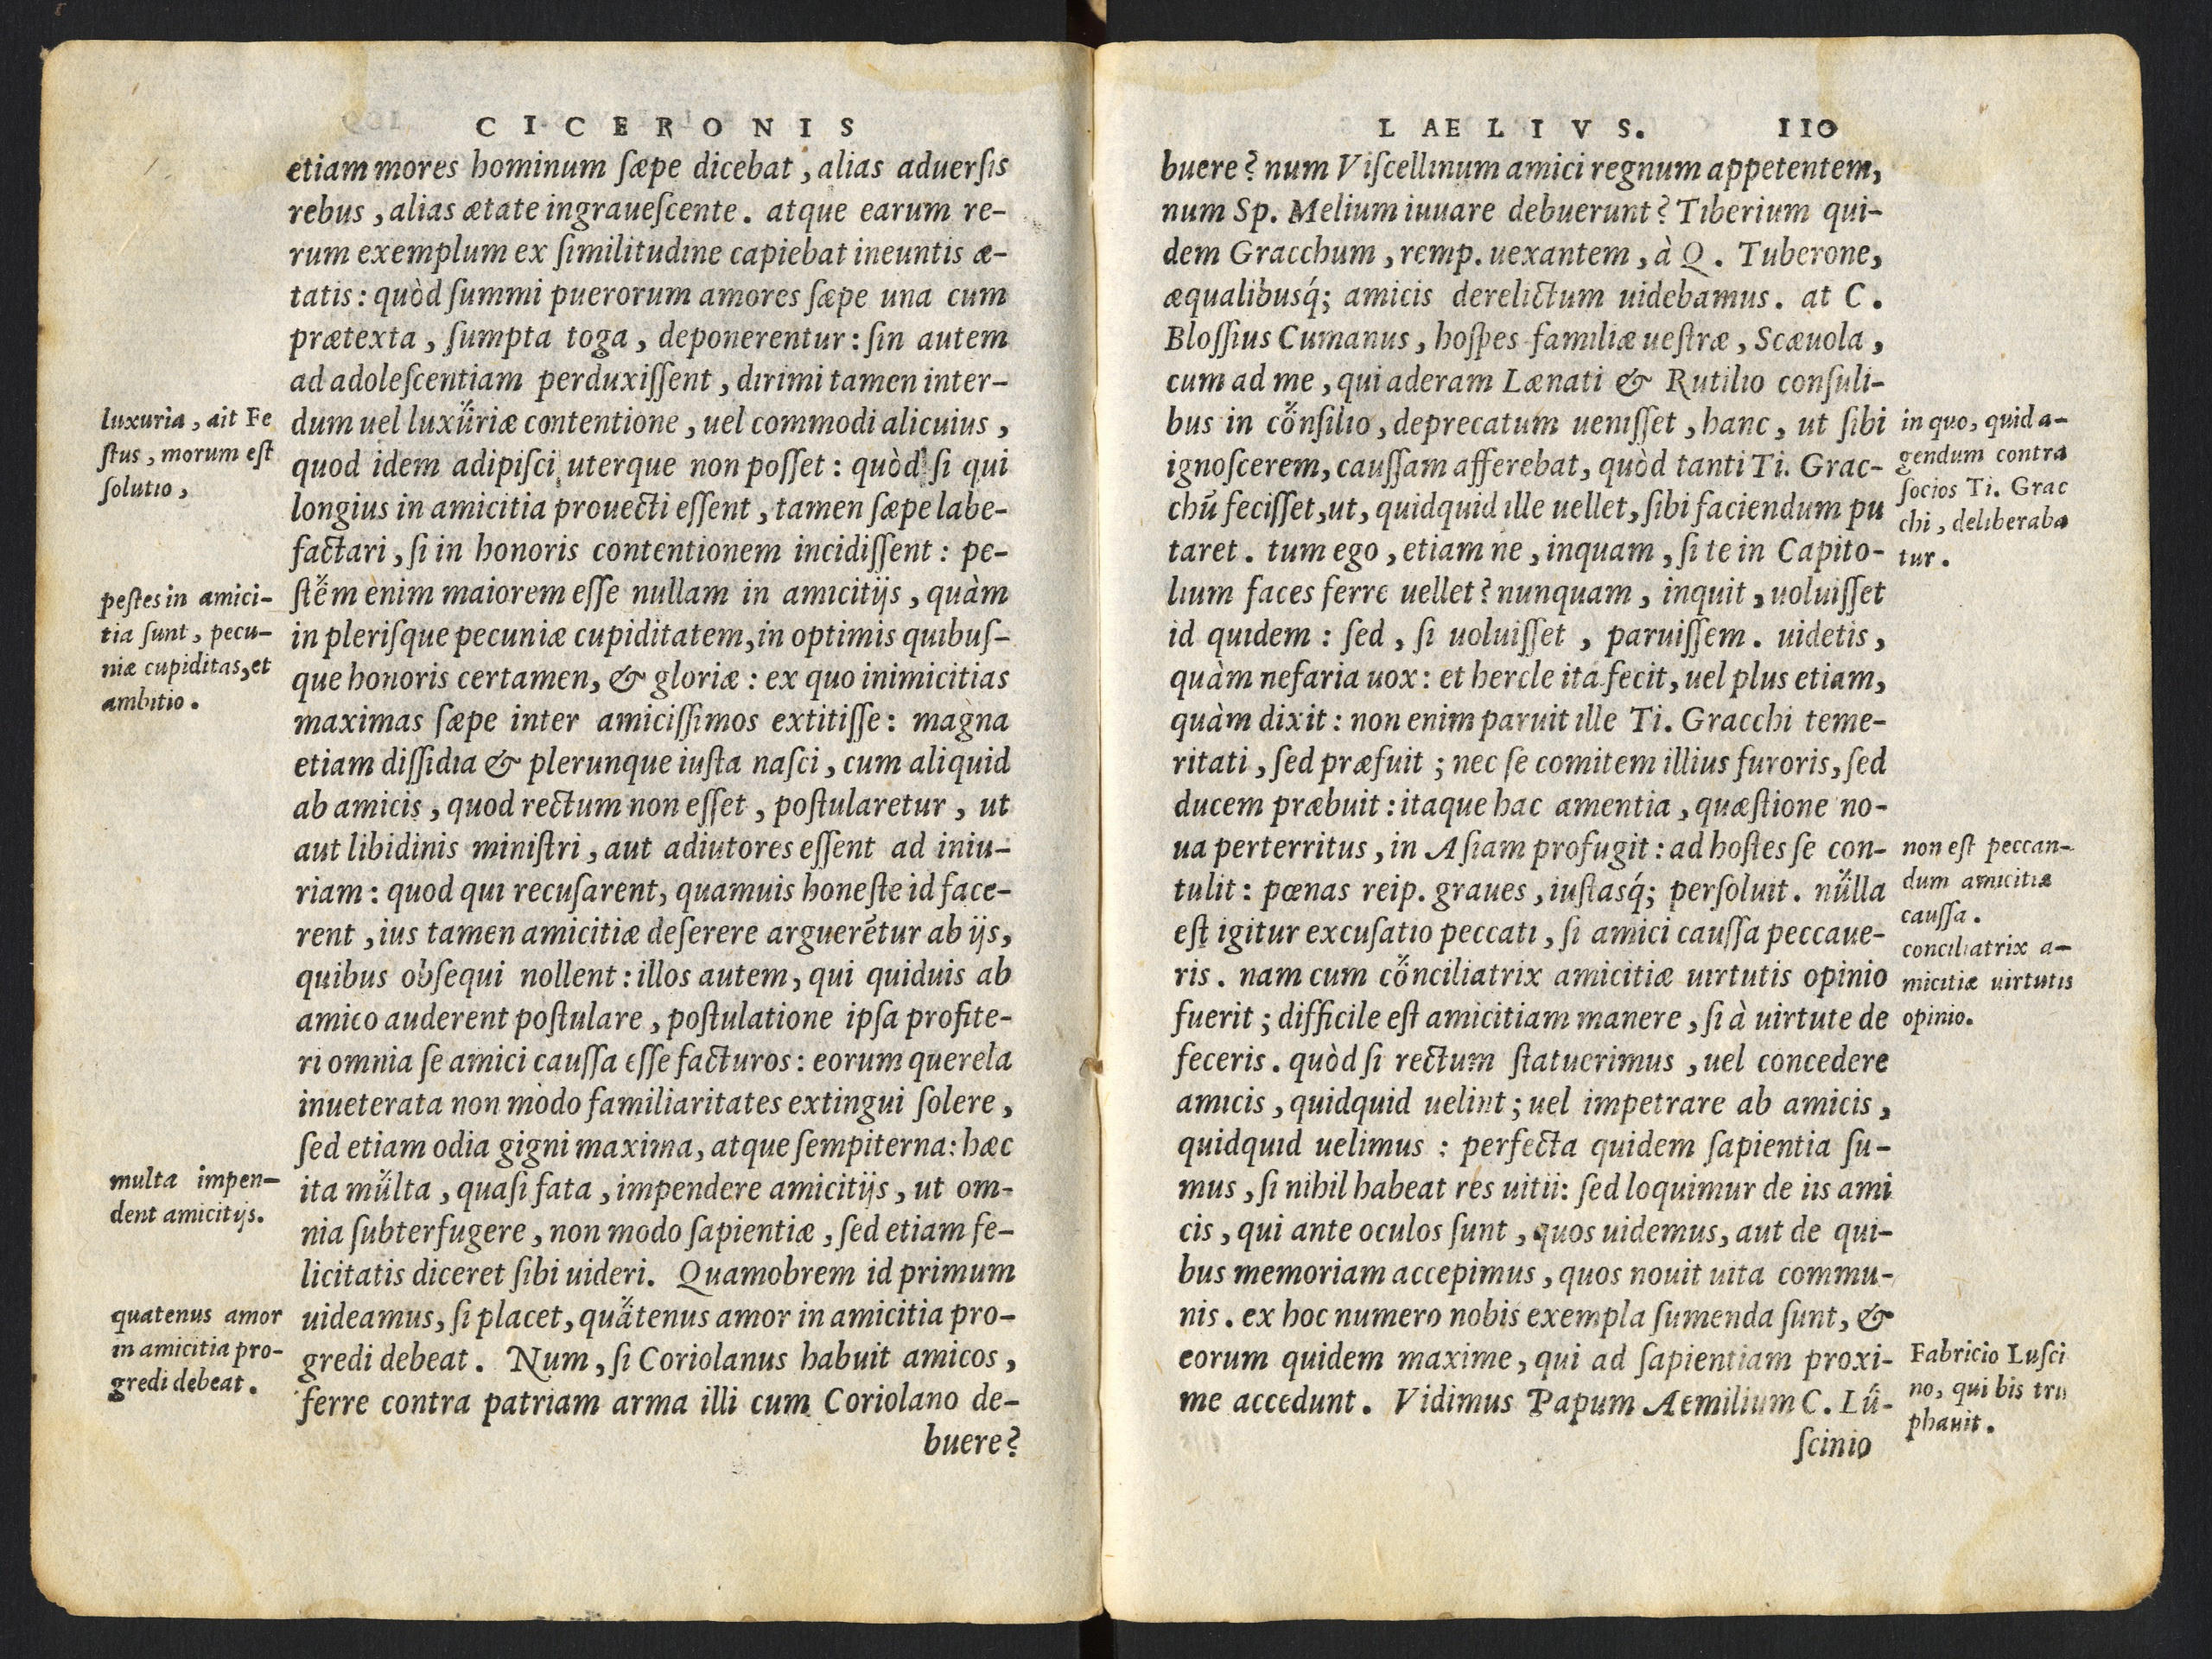 CICERONIS
etiam mores hominum ſæpe dicebat, alias aduerſis
rebus, alias ætate ingraueſcente. atque earum re-
rum exemplum ex ſimilitudine capiebat ineuntis æ-
tatis: quòd ſummi puerorum amores ſæpe una cum
prætexta, ſumpta toga, deponerentur: ſin autem
ad adoleſcentiam perduxiſſent, dirimi tamen inter-
dum uel luxüriæ contentione, uel commodi alicuius,
quod idem adipiſci uterque non poſſet: quòd ſi qui
longius in amicitia prouecti eſſent, tamen ſæpe labe-
factari, ſi in honoris contentionem incidiſſent: pe-
ſtëm enim maiorem eſſe nullam in amicitijs, quàm
in pleriſque pecuniæ cupiditatem, in optimis quibuſ-
que honoris certamen, & gloriæ: ex quo inimicitias
maximas ſæpe inter amiciſſimos extitiſſe: magna
etiam diſſidia & plerunque iuſta naſci, cum aliquid
ab amicis, quod rectum non eſſet, poſtularetur, ut
aut libidinis miniſtri, aut adiutores eſſent ad iniu-
riam: quod qui recuſarent, quamuis honeſte id face-
rent, ius tamen amicitiæ deſerere arguerētur ab ijs,
quibus obſequi nollent: illos autem, qui quiduis ab
amico auderent poſtulare, poſtulatione ipſa profite-
ri omnia ſe amici cauſſa eſſe facturos: eorum querela
inueterata non modo familiaritates extingui ſolere,
ſed etiam odia gigni maxima, atque ſempiterna: hæc
ita mülta, quaſi fata, impendere amicitijs, ut om-
nia ſubterfugere, non modo ſapientiæ, ſed etiam fe-
licitatis diceret ſibi uideri. Quamobrem id primum
uideamus, ſi placet, quätenus amor in amicitia pro-
gredi debeat. Num, ſi Coriolanus habuit amicos,
ferre contra patriam arma illi cum Coriolano de-
buere?
luxuria, ait Fe
ſtus, morum eſt
ſolutio,
peſtes in amici-
tia ſunt, pecu-
niæ cupiditas, et
ambitio.
multa impen-
dent amicitijs.
quatenus amor
in amicitia pro-
gredi debeat.
LAELIVS. 110
buere? num Viſcellinum amici regnum appetentem,
num Sp. Melium iuuare debuerunt? Tiberium qui-
dem Gracchum, remp. uexantem, à Q. Tuberone,
æqualibusq́; amicis derelictum uidebamus. at C.
Bloſſius Cumanus, hoſpes familiæ ueſtræ, Scæuola,
cum ad me, qui aderam Lænati & Rutilio conſuli-
bus in cönſilio, deprecatum ueniſſet, hanc, ut ſibi
ignoſcerem, cauſſam afferebat, quòd tanti Ti. Grac-
chū feciſſet, ut, quidquid ille uellet, ſibi faciendum pu
taret. tum ego, etiam ne, inquam, ſi te in Capito-
lium faces ferre uellet? nunquam, inquit, uoluiſſet
id quidem: ſed, ſi uoluiſſet, paruiſſem. uidetis,
quàm nefaria uox: et hercle ita fecit, uel plus etiam,
quàm dixit: non enim paruit ille Ti. Gracchi teme-
ritati, ſed præfuit; nec ſe comitem illius furoris, ſed
ducem præbuit: itaque hac amentia, quæſtione no-
ua perterritus, in Aſiam profugit: ad hoſtes ſe con-
tulit: pœnas reip. graues, iuſtasq́; perſoluit. nülla
eſt igitur excuſatio peccati, ſi amici cauſſa peccaue-
ris. nam cum cönciliatrix amicitiæ uirtutis opinio
fuerit; difficile eſt amicitiam manere, ſi à uirtute de
feceris. quòd ſi rectum ſtatuerimus, uel concedere
amicis, quidquid uelint; uel impetrare ab amicis,
quidquid uelimus: perfecta quidem ſapientia ſu-
mus, ſi nihil habeat res uitii: ſed loquimur de iis ami
cis, qui ante oculos ſunt, quos uidemus, aut de qui-
bus memoriam accepimus, quos nouit uita commu-
nis. ex hoc numero nobis exempla ſumenda ſunt, &
eorum quidem maxime, qui ad ſapientiam proxi-
me accedunt. Vidimus Papum Aemilium C. Lü-
ſcinio
in quo, quid a-
gendum contra
ſocios Ti. Grac
chi, deliberaba
tur.
non eſt peccan-
dum amicitiæ
cauſſa.
conciliatrix a-
micitiæ uirtutis
opinio.
Fabricio Luſci
no, qui bis triu
phauit.